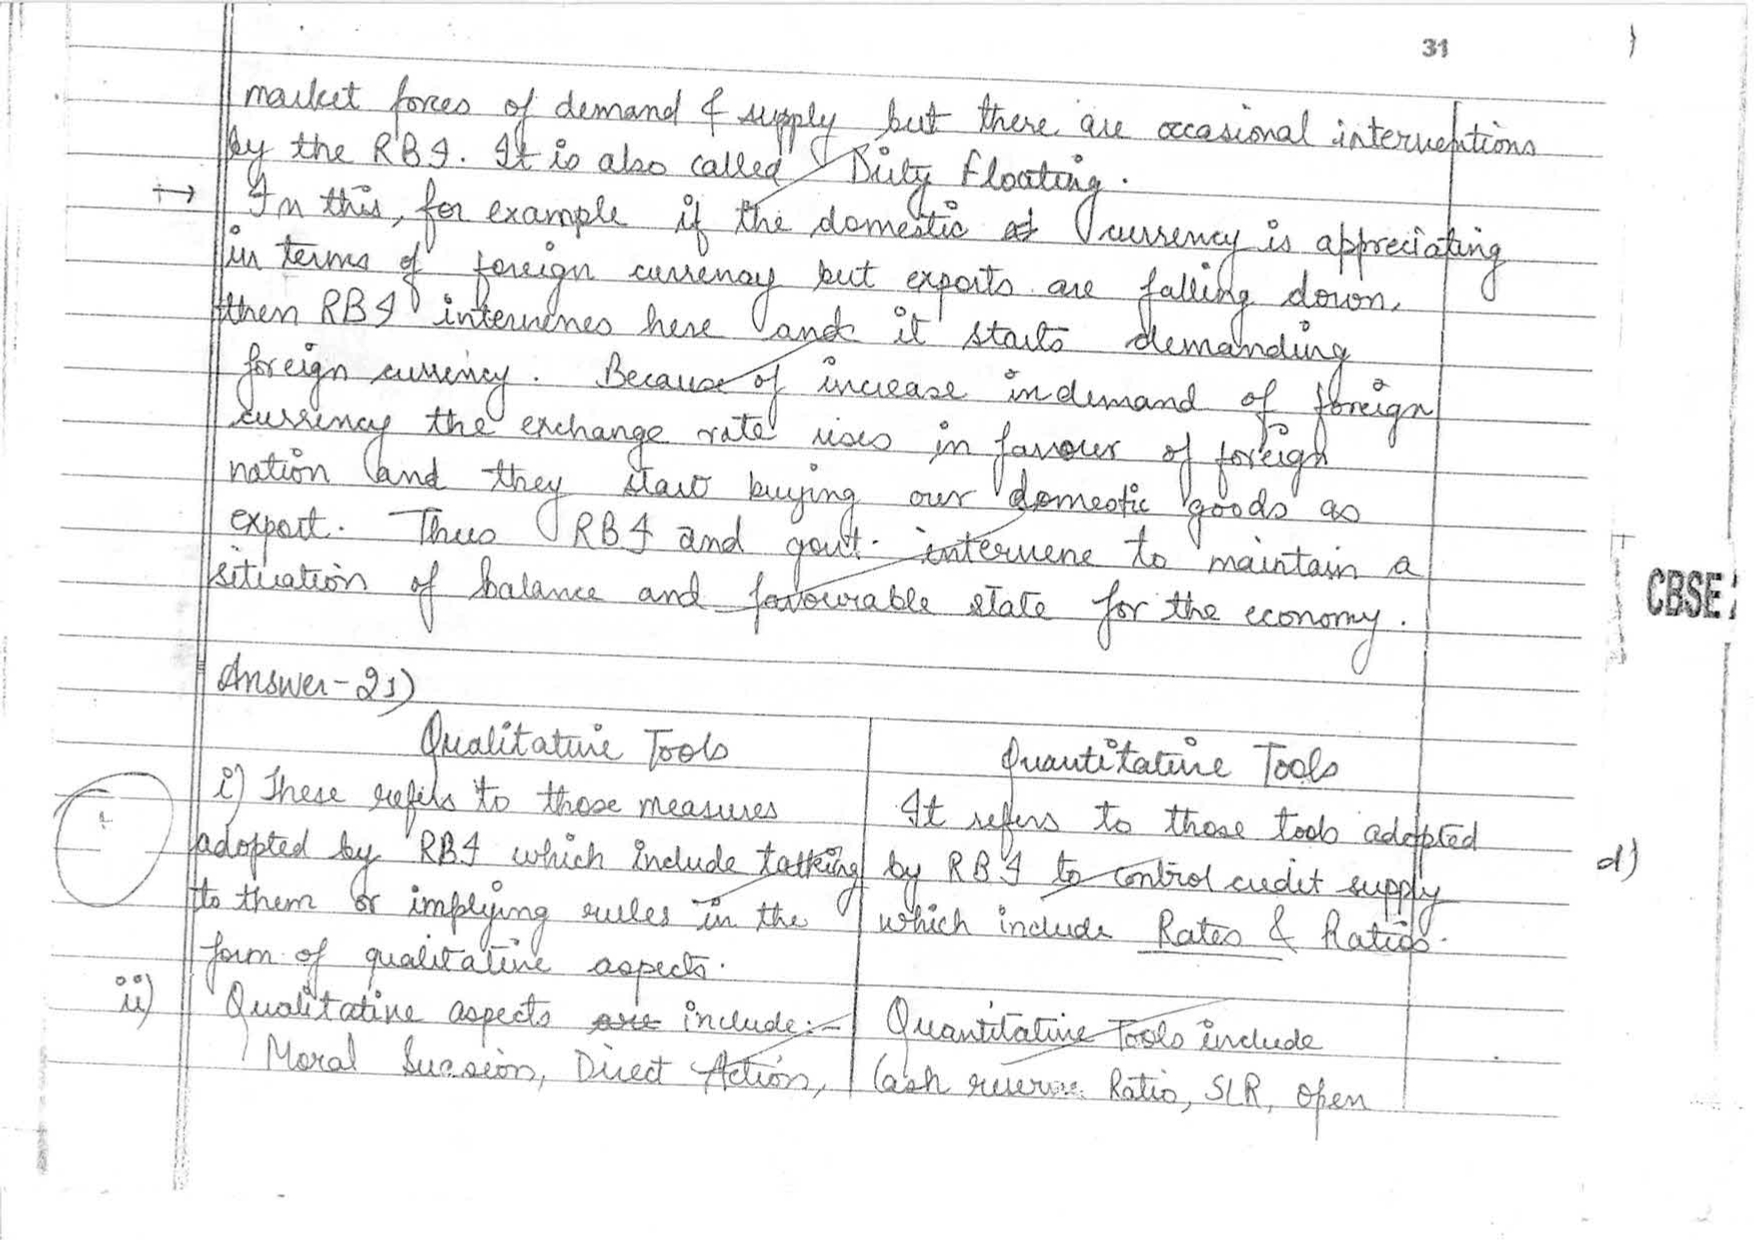 31
market forces of demand & supply but there are occasional interventions
by the RBI. It is also called Dirty Floating.
→ In this, for example if the domestic currency is appreciating
in terms of foreign currency but exports are falling down,
then RBI intervenes here and it starts demanding
foreign currency. Because of increase in demand of foreign
currency the exchange rate rises in favour of foreign
nation and they start buying our domestic goods as
export. Thus RBI and govt. intervene to maintain a
situation of balance and favourable state for the economy.
CBSE
Answer-21)
Qualitative Tools
i) These refers to those measures
adopted by RBI which include talking
to them or implying rules in the
form of qualitative aspects.
ii) Qualitative aspects are include:-
Moral Suasion, Direct Action,
Quantitative Tools
It refers to those tools adopted
by RBI to control credit supply
which include Rates & Ratios.
Quantitative Tools include
Cash reserve Ratio, SLR, open
d)